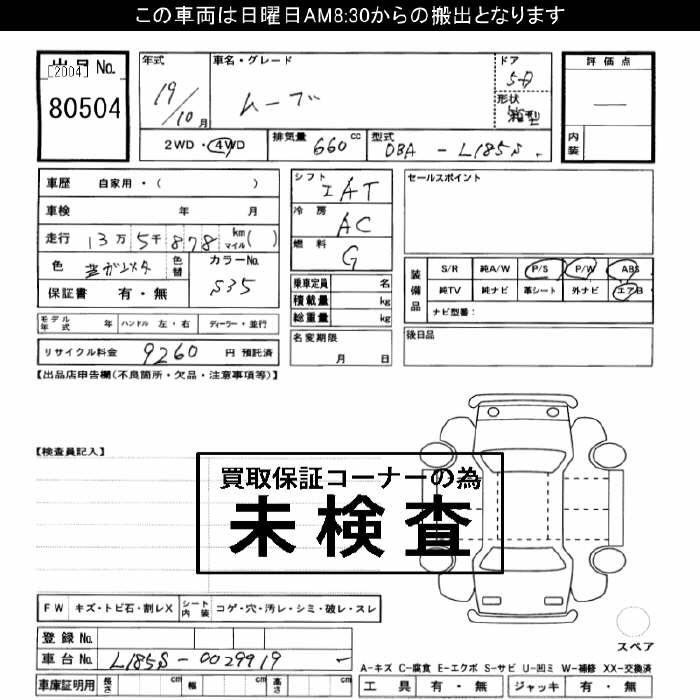 この車両は日曜日AM8:30からの搬出となります
出品 No.
[2004]
80504
年式
19/10 月
車名・グレード
ムーブ
ドア
5D
形状
箱型
評価点
内装
2WD・4WD
排気量 660 cc
型式 DBA - L185S
車歴 自家用・( )
車検 年 月
走行 13万 5千 878 km マイル ( )
色
色替
カラーNo. S35
保証書 有・無
シフト IAT
冷房 AC
燃料 G
乗車定員 名
積載量 kg
総重量 kg
セールスポイント
装備品
S/R 純A/W P/S P/W ABS
純TV 純ナビ 革シート 外ナビ エアB
ナビ型番:
モデル年式 年 ハンドル 左・右 ディーラー・並行
名変期限 月 日
後日品
リサイクル料金 9260 円 預託済
【出品店申告欄(不良箇所・欠品・注意事項等)】
【検査員記入】
買取保証コーナーの為
未検査
FW キズ・トビ石・割レX シート内装 コゲ・穴・汚レ・シミ・破レ・スレ
スペア
登録 No.
車台 No. L185S-0029919
A-キズ C-腐食 E-エクボ S-サビ U-凹ミ W-補修 XX-交換済
車庫証明用 長さ cm 幅 cm 高さ cm
工具 有・無 ジャッキ 有・無